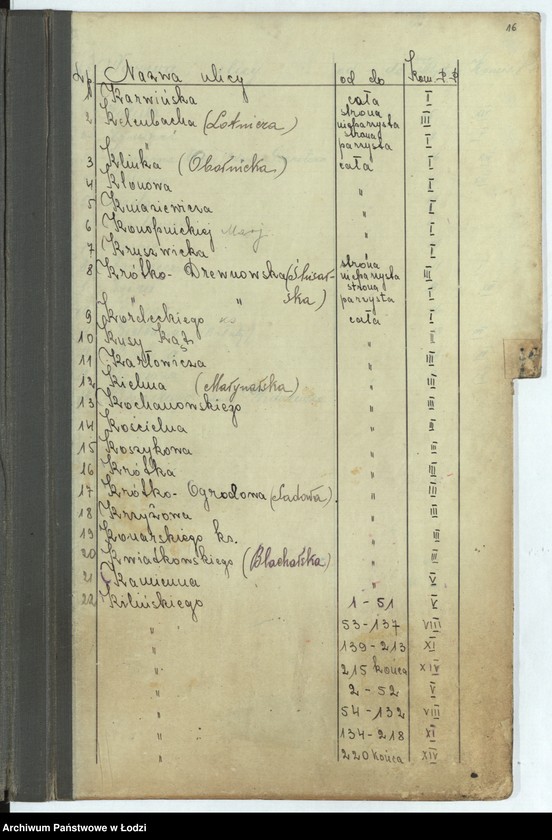 16
Lp Nazwa ulicy od do Kom. P. P.
1 Karwińska cała I
2 Kelenbacha (Lotnicza) strona nieparzysta III
strona parzysta I
3 Klinka (Obornicka) cała I
4 Klonowa " I
5 Kniaziewicza " I
6 Konopnickiej Marj. " I
7 Kruszwicka " I
8 Krótko-Drewnowska (Ślusar- strona nieparzysta III
" " ska) strona parzysta I
9 Kordeckiego ks. cała I
10 Kusy Kąt " III
11 Karłowicza " III
12 Kielma (Marynarska) " III
13 Kochanowskiego " III
14 Kościelna " III
15 Koszykowa " III
16 Krótka " III
17 Krótko-Ogrodowa (Sadowa). " III
18 Krzyżowa " III
19 Konarskiego ks. " III
20 Kwiatkowskiego (Blacharska) " III
21 Kamienna " V
22 Kilińskiego 1-51 V
" 53-137 VIII
" 139-213 XI
" 215 końca XIV
" 2-52 V
" 54-132 VIII
" 134-218 XI
" 220 końca XIV
Archiwum Państwowe w Łodzi